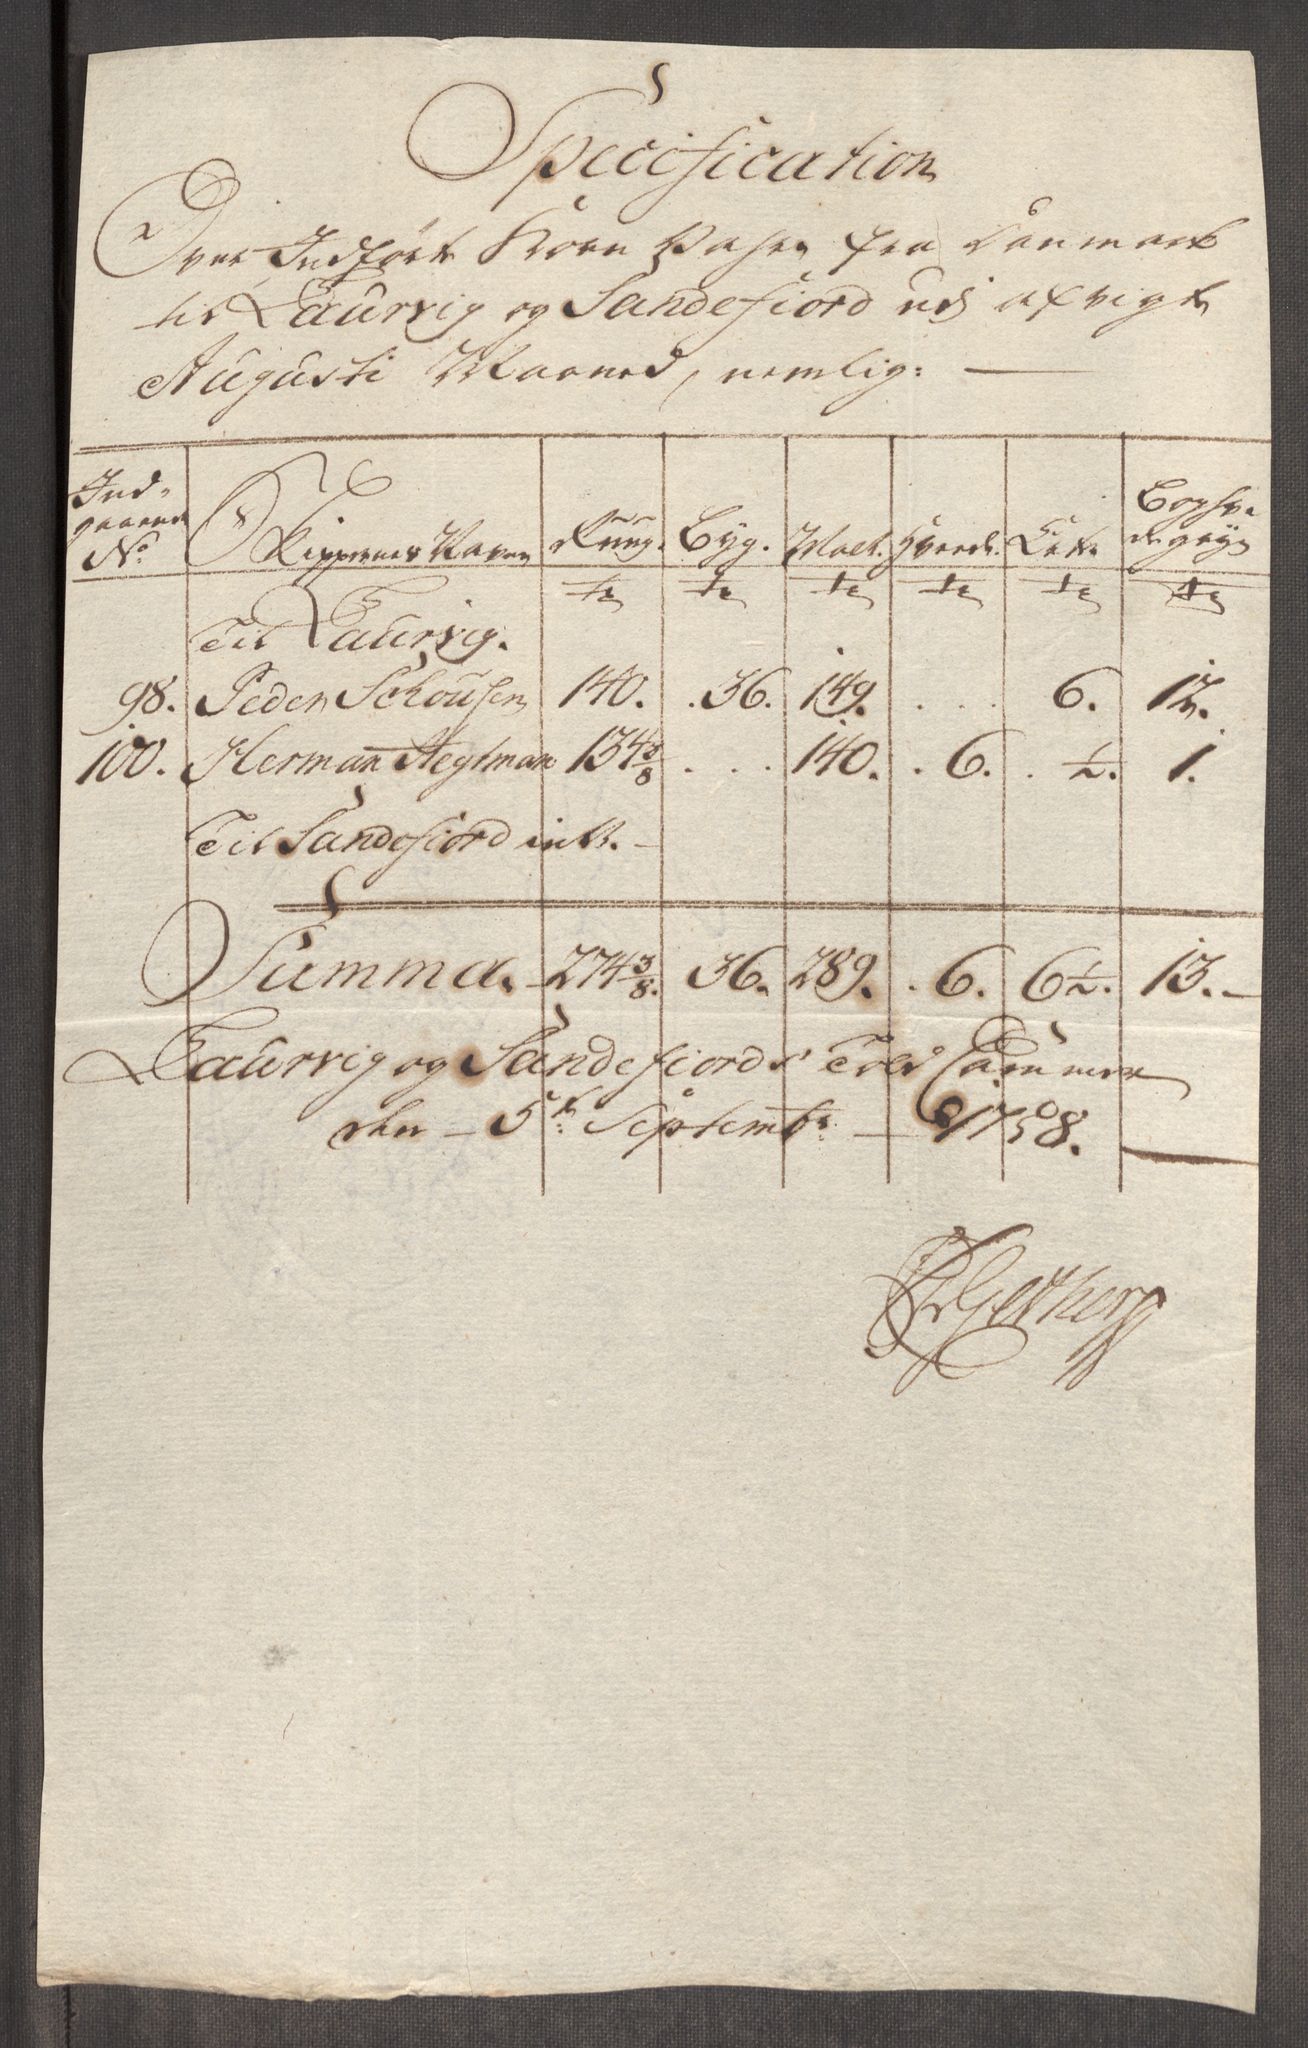 Specification
Over Indført Korn Vahre fra Danmark
til Laurvig og Sandefiord udj afvigte
Augusti Maaned, nemlig:
Ind-
gaaende
No. Skippernes Navne Rug. Byg. Malt. Hvede. Erter Boghve-
de gryn
te te te te te te
Til Laurvig.
98. Peder Schousen 140. . 36. 149. . . . 6. 12.
100. Herman Aegtman 134 3/8 . . . 140. . 6. . 1/2. 1.
Til Sandefiord intt.
Summa. 274 3/8. 36. 289. . 6. 6 1/2. 13.
Laurvig og Sandefiords Told Cammer
den 5t. Septembr. 1758.